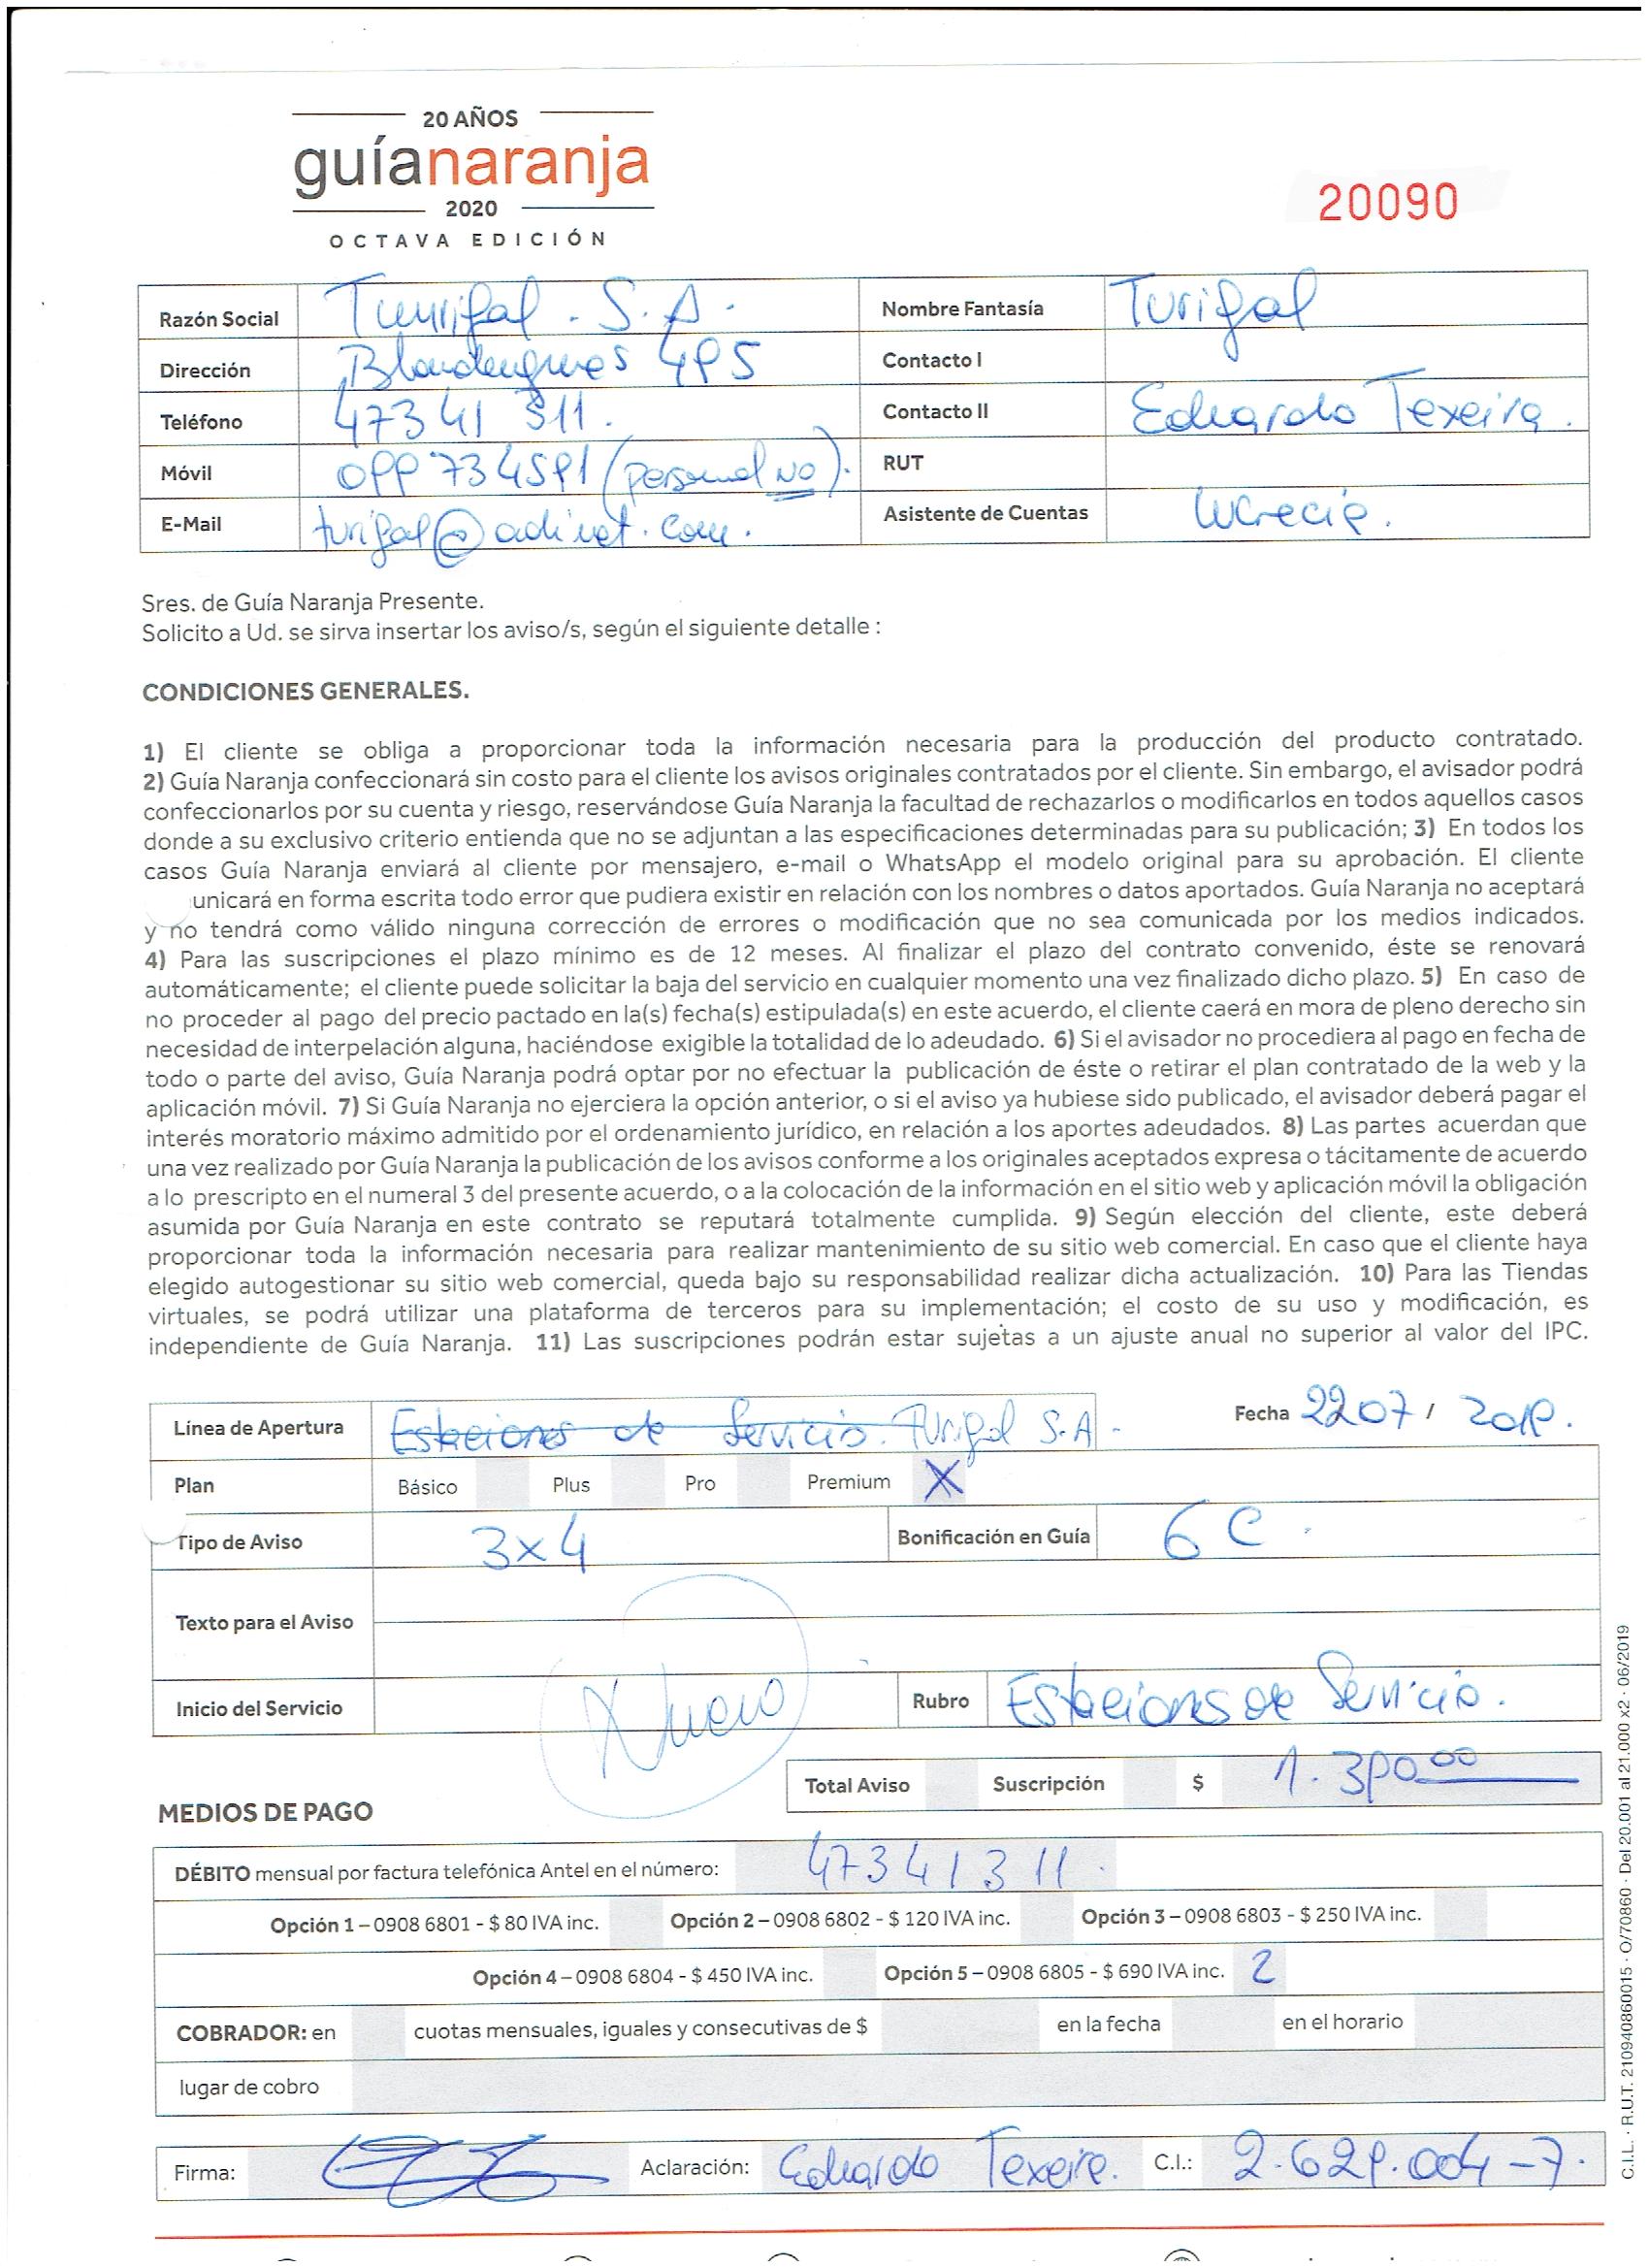 20 AÑOS
guíanaranja
2020
OCTAVA EDICIÓN
20090
Razón Social Turifal . S.A. Nombre Fantasía Turifal
Dirección Blandengues 495 Contacto I
Teléfono 473 41 311. Contacto II Eduardo Texeira.
Móvil 099 734591 (personal NO). RUT
E-Mail turifal@adinet.com. Asistente de Cuentas Lucrecia.
Sres. de Guía Naranja Presente.
Solicito a Ud. se sirva insertar los aviso/s, según el siguiente detalle :
CONDICIONES GENERALES.
1) El cliente se obliga a proporcionar toda la información necesaria para la producción del producto contratado.
2) Guía Naranja confeccionará sin costo para el cliente los avisos originales contratados por el cliente. Sin embargo, el avisador podrá
confeccionarlos por su cuenta y riesgo, reservándose Guía Naranja la facultad de rechazarlos o modificarlos en todos aquellos casos
donde a su exclusivo criterio entienda que no se adjuntan a las especificaciones determinadas para su publicación; 3) En todos los
casos Guía Naranja enviará al cliente por mensajero, e-mail o WhatsApp el modelo original para su aprobación. El cliente
unicará en forma escrita todo error que pudiera existir en relación con los nombres o datos aportados. Guía Naranja no aceptará
y no tendrá como válido ninguna corrección de errores o modificación que no sea comunicada por los medios indicados.
4) Para las suscripciones el plazo mínimo es de 12 meses. Al finalizar el plazo del contrato convenido, éste se renovará
automáticamente; el cliente puede solicitar la baja del servicio en cualquier momento una vez finalizado dicho plazo. 5) En caso de
no proceder al pago del precio pactado en la(s) fecha(s) estipulada(s) en este acuerdo, el cliente caerá en mora de pleno derecho sin
necesidad de interpelación alguna, haciéndose exigible la totalidad de lo adeudado. 6) Si el avisador no procediera al pago en fecha de
todo o parte del aviso, Guía Naranja podrá optar por no efectuar la publicación de éste o retirar el plan contratado de la web y la
aplicación móvil. 7) Si Guía Naranja no ejerciera la opción anterior, o si el aviso ya hubiese sido publicado, el avisador deberá pagar el
interés moratorio máximo admitido por el ordenamiento jurídico, en relación a los aportes adeudados. 8) Las partes acuerdan que
una vez realizado por Guía Naranja la publicación de los avisos conforme a los originales aceptados expresa o tácitamente de acuerdo
a lo prescripto en el numeral 3 del presente acuerdo, o a la colocación de la información en el sitio web y aplicación móvil la obligación
asumida por Guía Naranja en este contrato se reputará totalmente cumplida. 9) Según elección del cliente, este deberá
proporcionar toda la información necesaria para realizar mantenimiento de su sitio web comercial. En caso que el cliente haya
elegido autogestionar su sitio web comercial, queda bajo su responsabilidad realizar dicha actualización. 10) Para las Tiendas
virtuales, se podrá utilizar una plataforma de terceros para su implementación; el costo de su uso y modificación, es
independiente de Guía Naranja. 11) Las suscripciones podrán estar sujetas a un ajuste anual no superior al valor del IPC.
Línea de Apertura Estaciones de Servicio. Turifal S.A. Fecha 22 07 / 2019.
Plan Básico Plus Pro Premium X
Tipo de Aviso 3x4 Bonificación en Guía 6 C
Texto para el Aviso
Inicio del Servicio Nuevo Rubro Estaciones de Servicio.
Total Aviso Suscripción $ 1.390.00
MEDIOS DE PAGO
DÉBITO mensual por factura telefónica Antel en el número: 47341311.
Opción 1 – 0908 6801 - $ 80 IVA inc. Opción 2 – 0908 6802 - $ 120 IVA inc. Opción 3 – 0908 6803 - $ 250 IVA inc.
Opción 4 – 0908 6804 - $ 450 IVA inc. Opción 5 – 0908 6805 - $ 690 IVA inc. 2
COBRADOR: en cuotas mensuales, iguales y consecutivas de $ en la fecha en el horario
lugar de cobro
Firma: Aclaración: Eduardo Texeira. C.I.: 2.629.004-7.
C.I.L. · R.U.T. 210940860015 · O/70860 · Del 20.001 al 21.000 x2 · 06/2019